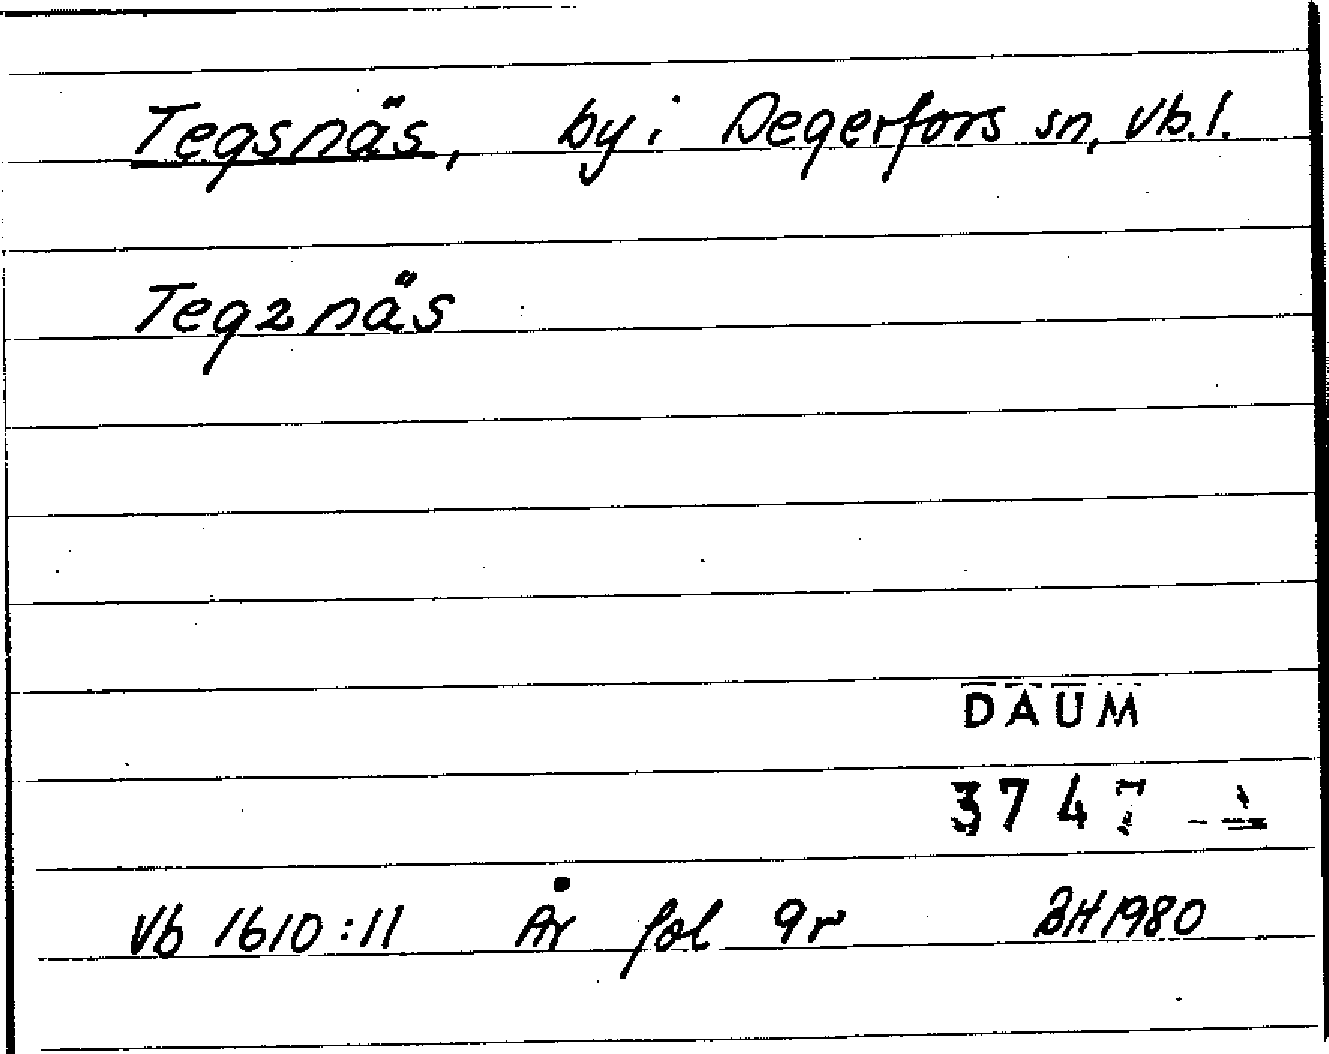 Tegsnäs, by i Degerfors sn, Vb. l.
Tegznäs
DAUM
3747
Vb 1610:11 År fol 9r BH 1980